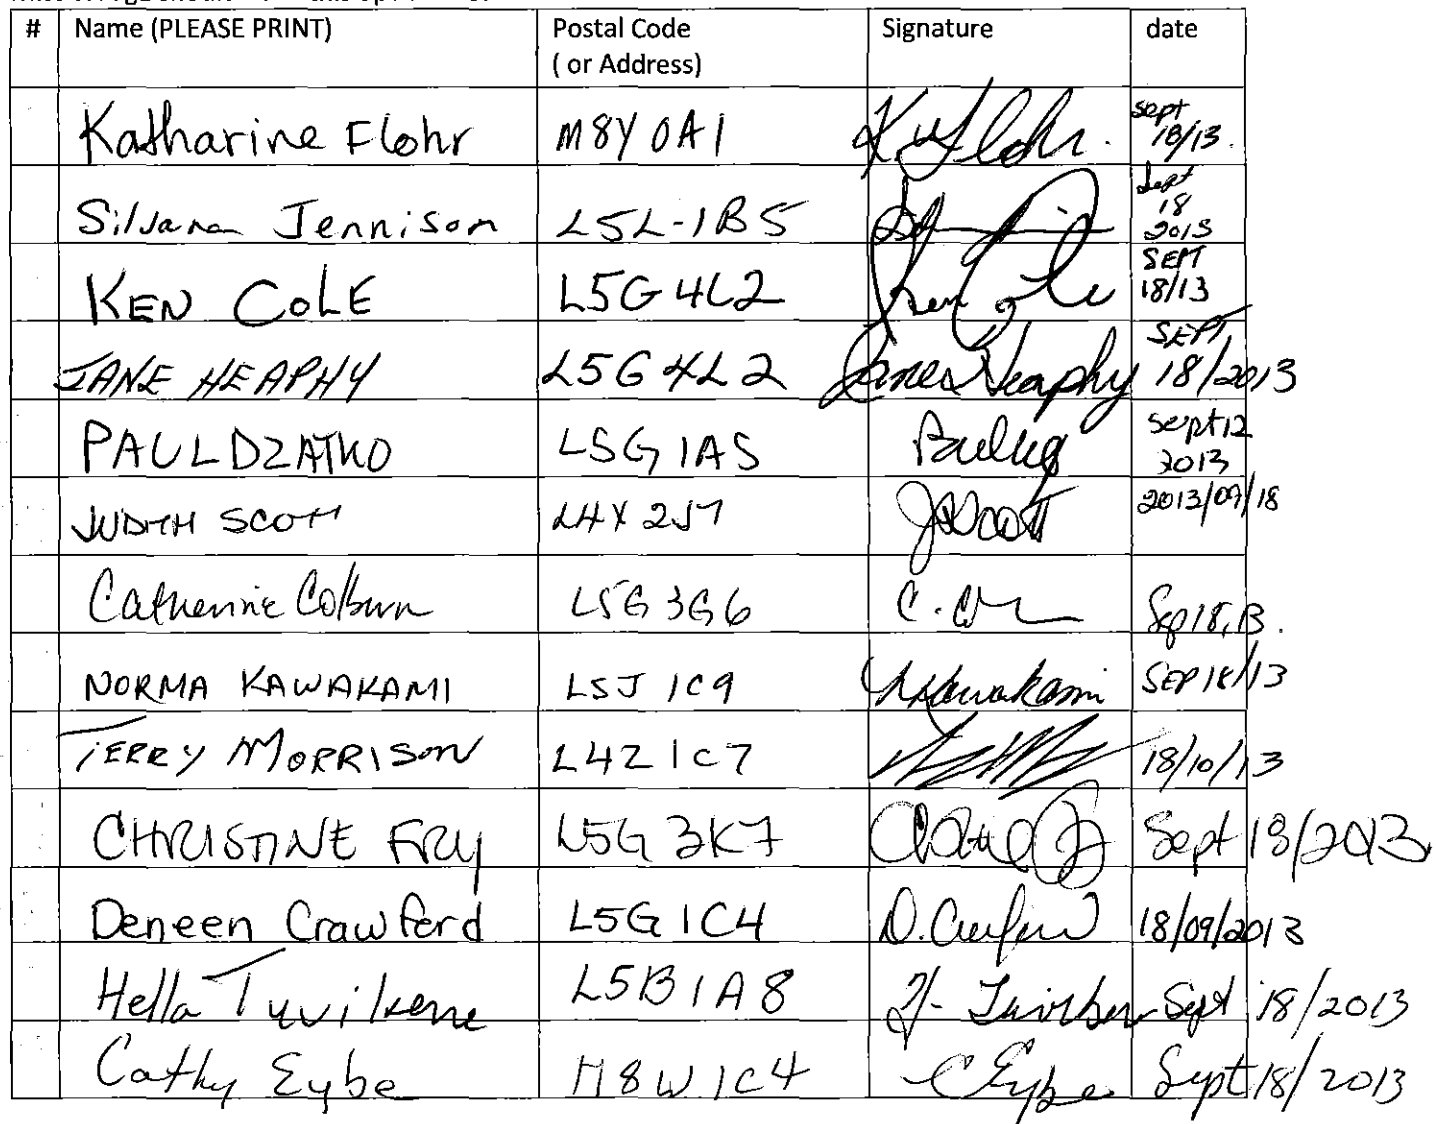 # Name (PLEASE PRINT) Postal Code Signature date
( or Address)
Katharine Flohr M8Y 0A1 K Flohr. sept
18/13.
Silvana Jennison L5L-1B5 Sept
18
2013
KEN COLE L5G 4L2 Ken Cole SEPT
18/13
JANE HEAPHY L5G 4L2 Jane Heaphy SEPT,
18/2013
PAUL DZATKO L5G 1A5 sept 12
2013
JUDITH SCOTT L4X 2J7 J Scott 2013/09/18
Catherine Colburn L5G 3G6 C. Sep 18, 13.
NORMA KAWAKAMI L5J 1C9 NKawakami SEP 18/13
TERRY MORRISON L4Z 1C7 18/10/13
CHRISTINE FRY L5G 3K7 Sept 18/2013
Deneen Crawford L5G 1C4 D. Crawford 18/09/2013
Hella Tuvikene L5B 1A8 H- Sept 18/2013
Cathy Eybe M8W 1C4 C Eybe Sept 18/2013